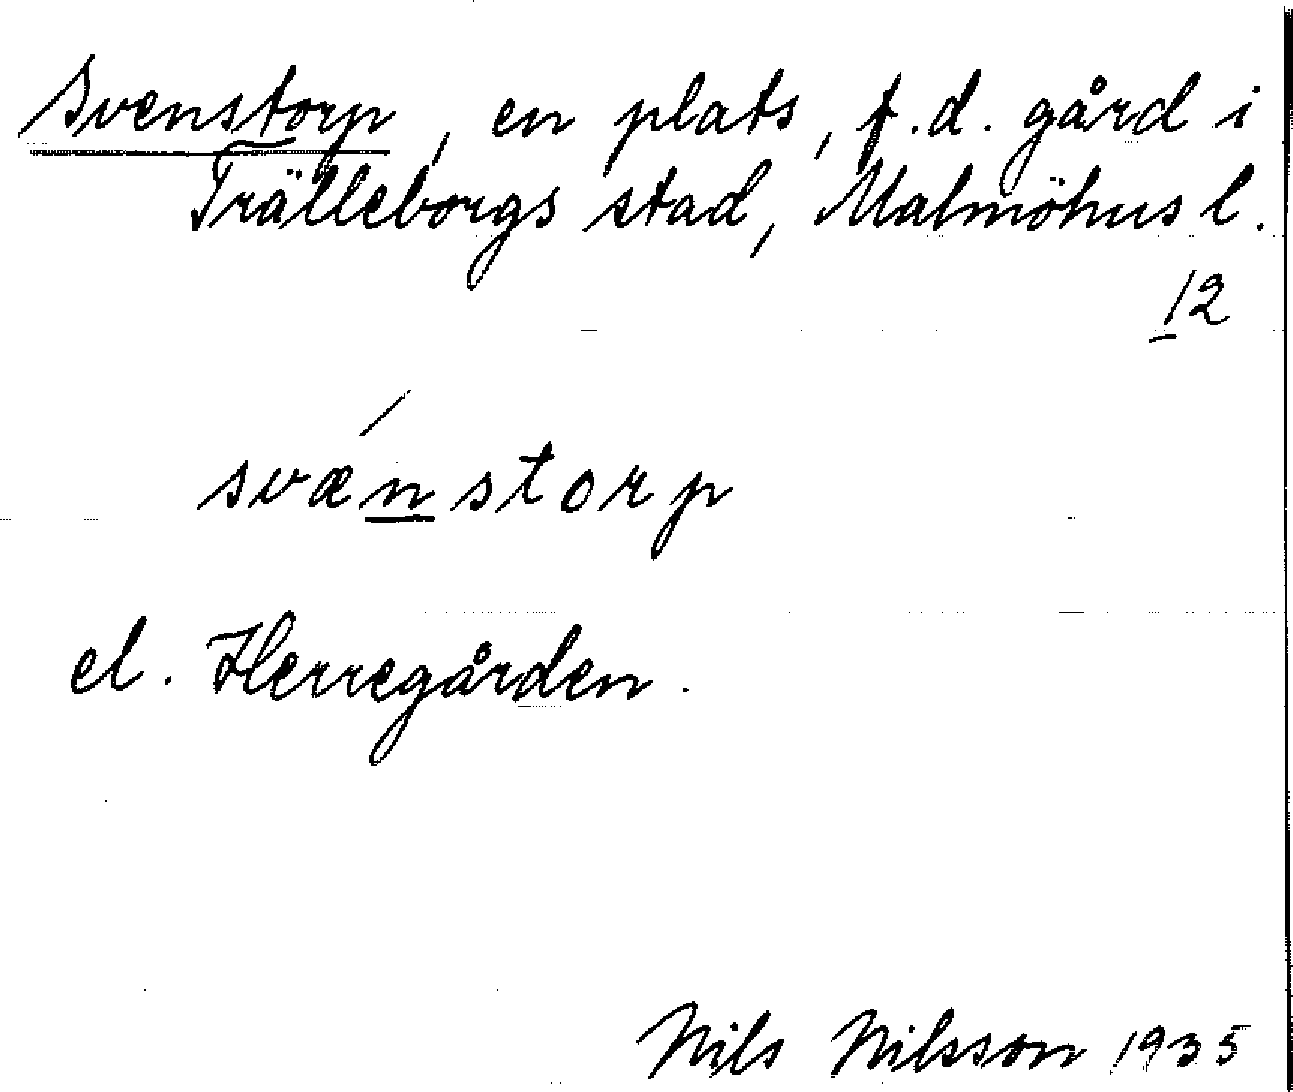 Svenstorp, en plats, f.d. gård i
Trälleborgs stad, Malmöhus l.
12
svænstorp
el. Herregården.
Nils Nilsson 1935